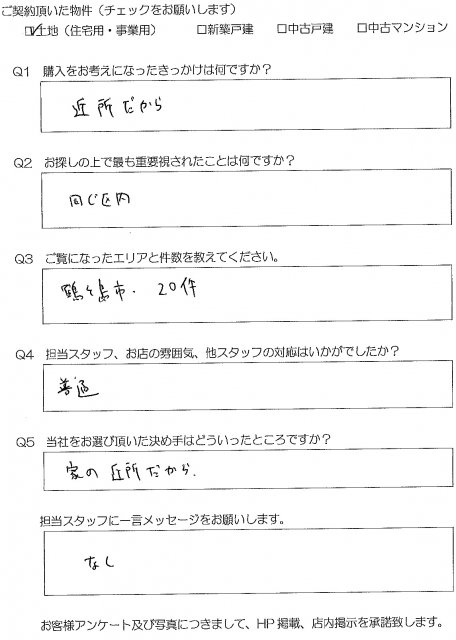 ご契約頂いた物件（チェックをお願いします）
☑土地（住宅用・事業用）　□新築戸建　□中古戸建　□中古マンション
Q1　購入をお考えになったきっかけは何ですか？
近所だから
Q2　お探しの上で最も重要視されたことは何ですか？
同じ区内
Q3　ご覧になったエリアと件数を教えてください。
鶴ヶ島市．20件
Q4　担当スタッフ、お店の雰囲気、他スタッフの対応はいかがでしたか？
普通
Q5　当社をお選び頂いた決め手はどういったところですか？
家の近所だから．
担当スタッフに一言メッセージをお願いします。
なし
お客様アンケート及び写真につきまして、HP掲載、店内掲示を承諾致します。